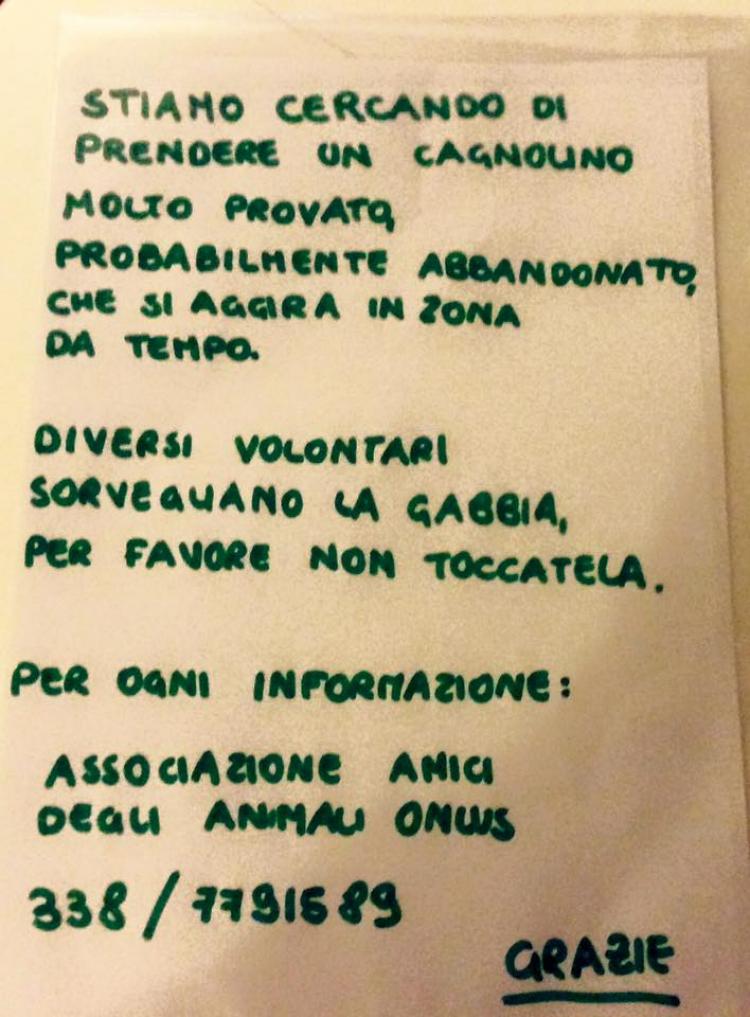 STIAMO CERCANDO DI
PRENDERE UN CAGNOLINO
MOLTO PROVATO,
PROBABILMENTE ABBANDONATO,
CHE SI AGGIRA IN ZONA
DA TEMPO.
DIVERSI VOLONTARI
SORVEGLIANO LA GABBIA,
PER FAVORE NON TOCCATELA.
PER OGNI INFORMAZIONE:
ASSOCIAZIONE AMICI
DEGLI ANIMALI ONLUS
338/7791589
GRAZIE